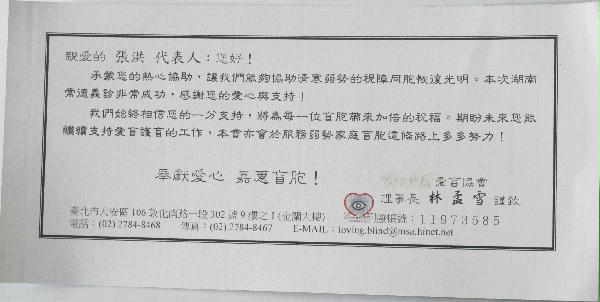 親愛的 張洪 代表人：您好！
承蒙您的熱心協助，讓我們能夠協助清寒弱勢的視障同胞恢復光明。本次湖南
常德義診非常成功，感謝您的愛心與支持！
我們始終相信您的一分支持，將為每一位盲胞帶來加倍的祝福。期盼未來您能
繼續支持愛盲護盲的工作，本會亦會於服務弱勢家庭盲胞這條路上多多努力！
奉獻愛心 嘉惠盲胞！
愛盲協會
理事長 林孟雪 謹啟
臺北市大安區 106 敦化南路一段 302 號 9 樓之 1 (金蘭大樓) 劃撥帳號：11973585
電話：(02) 2784-8468 傳真：(02) 2784-8467 E-MAIL：loving.blind@msa.hinet.net